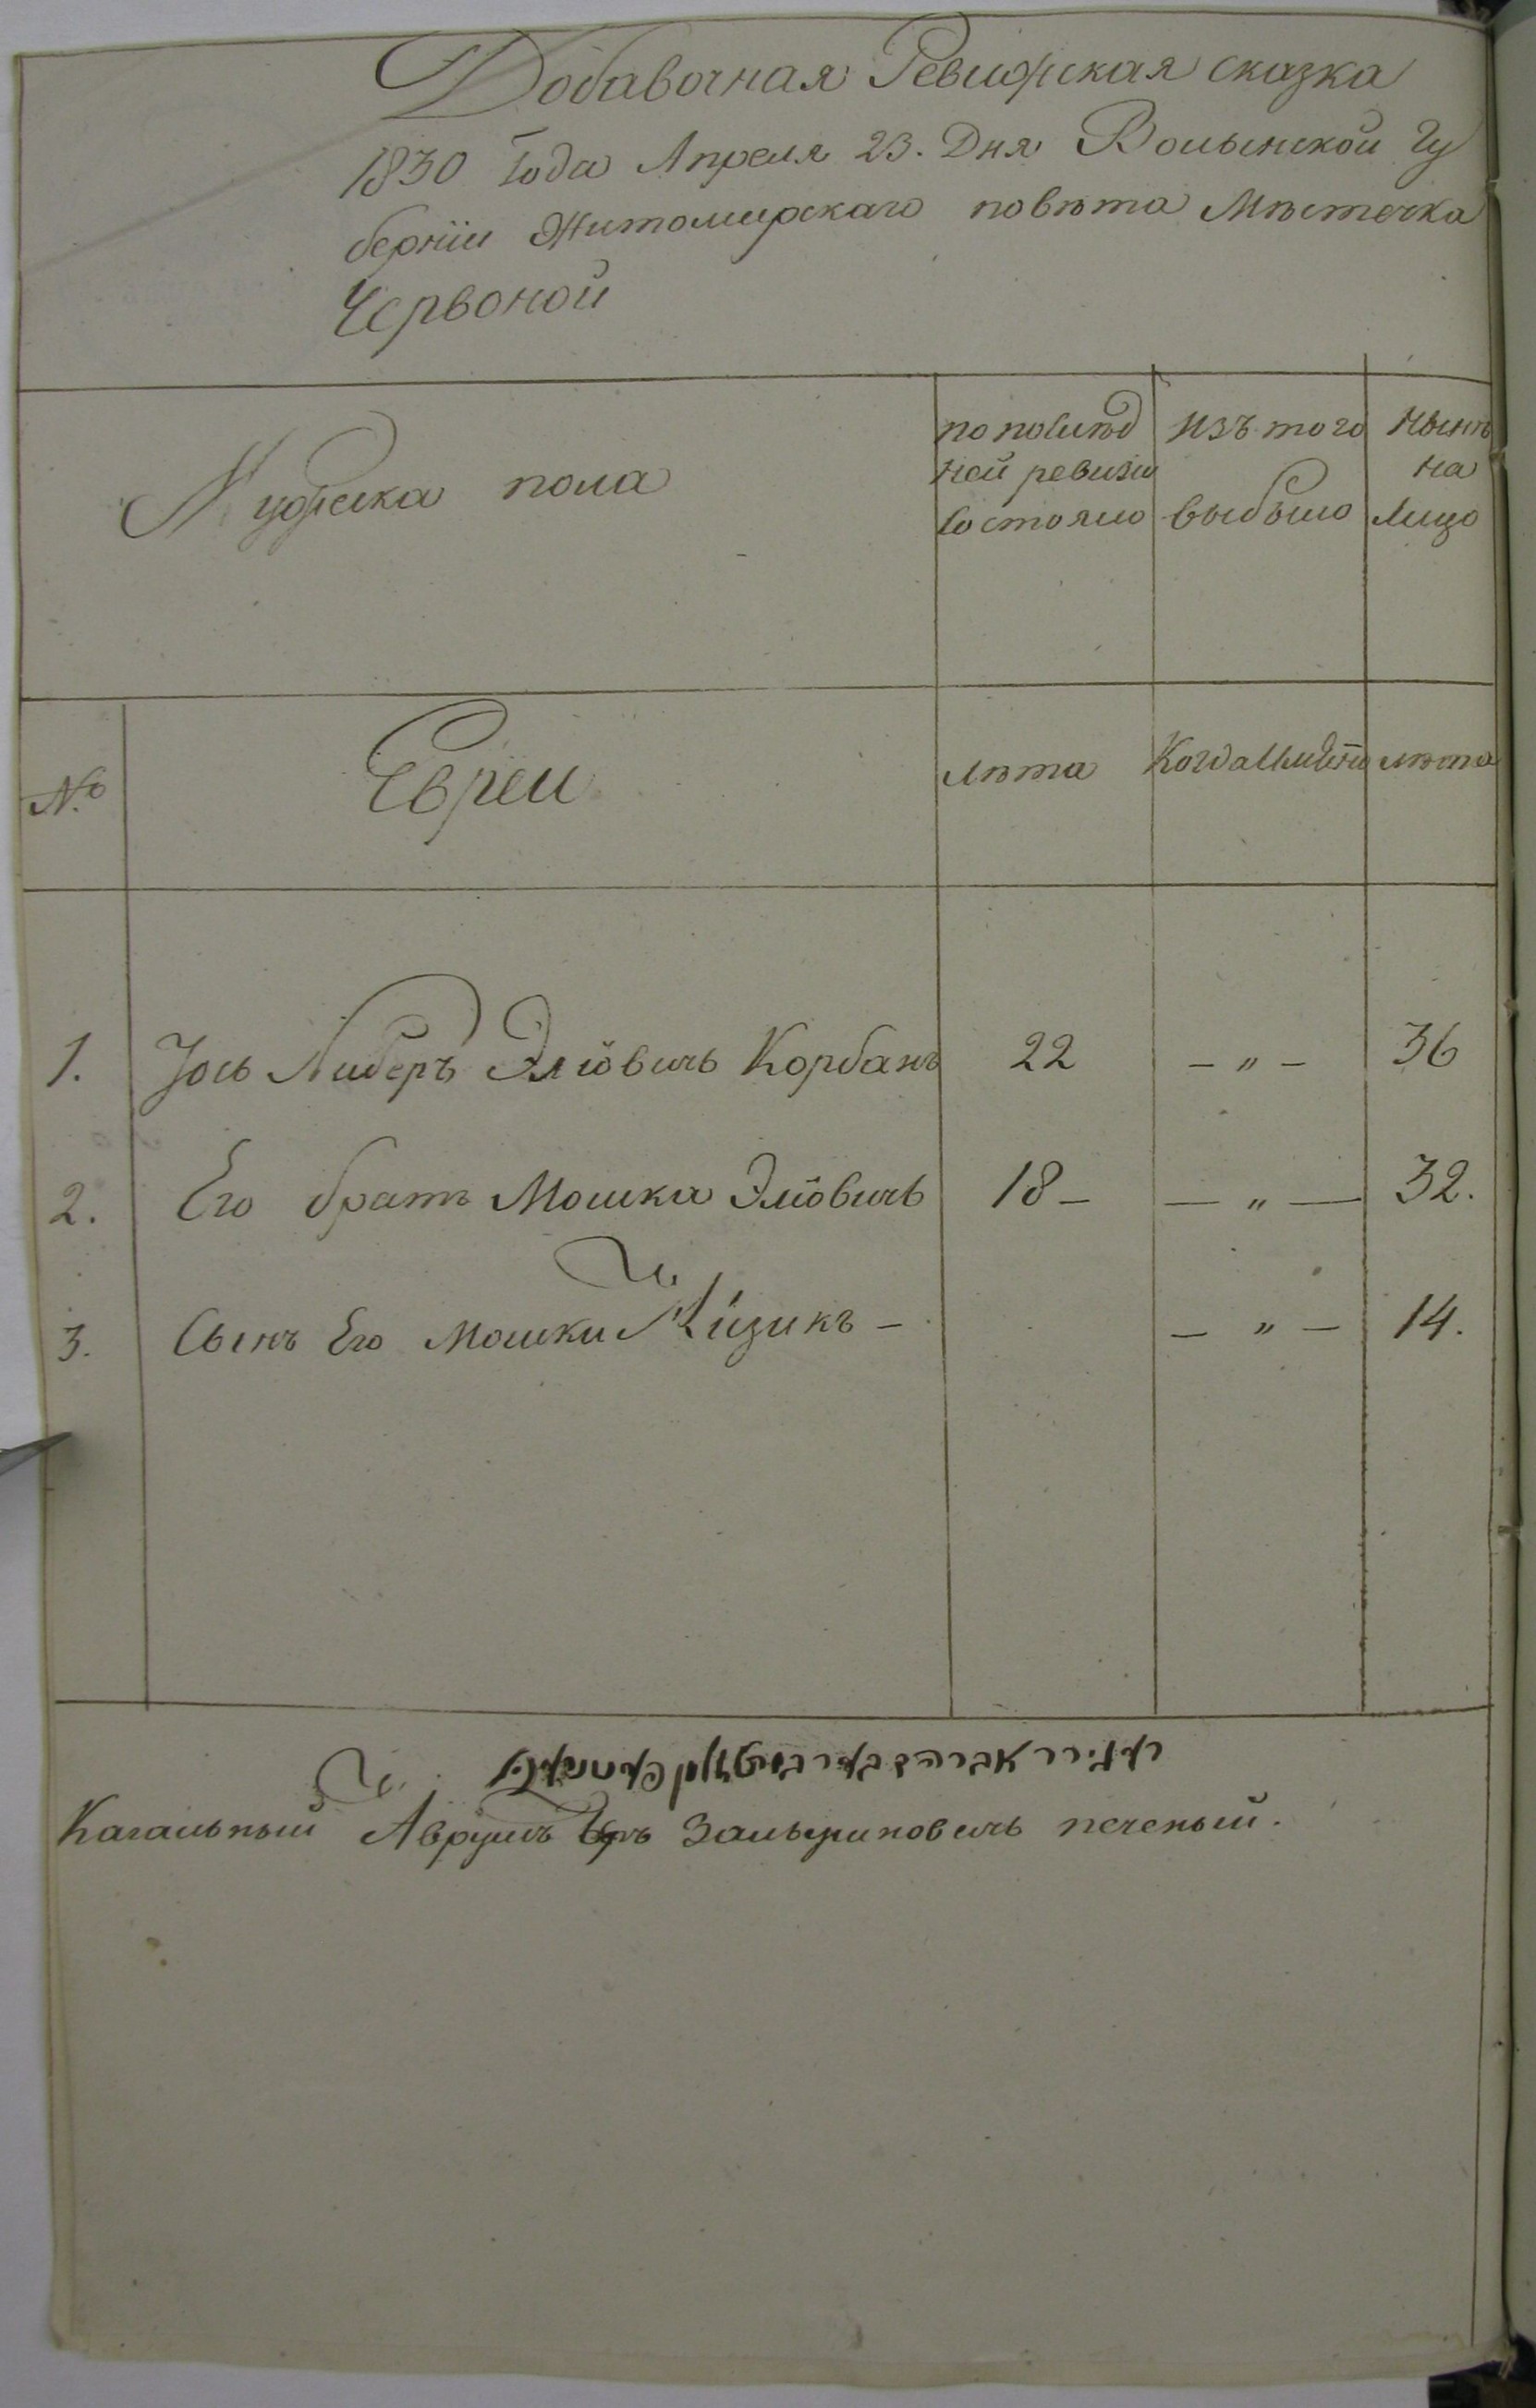 Добавочная Ревижская сказка
1830 Года Апреля 23. Дня Волынской Гу
бернїи Житомирскаго повѣта Мѣстечка
Червоной
Мужеска пола
по послѣд
ней ревизи
состояло
изъ того
выбыло
нынѣ
на
лицо
№
Евреи
лѣта
Когда
лѣта
1. Іось Либеръ Эліовичь Корбанъ 22 - „ - 36
2. Его братъ Мошка Эліовичь 18 - - „ - 32.
3. Сынъ Его Мошки Айзикъ - - „ - 14.
Кагальный Аврумъ Зальмановичь печеный.